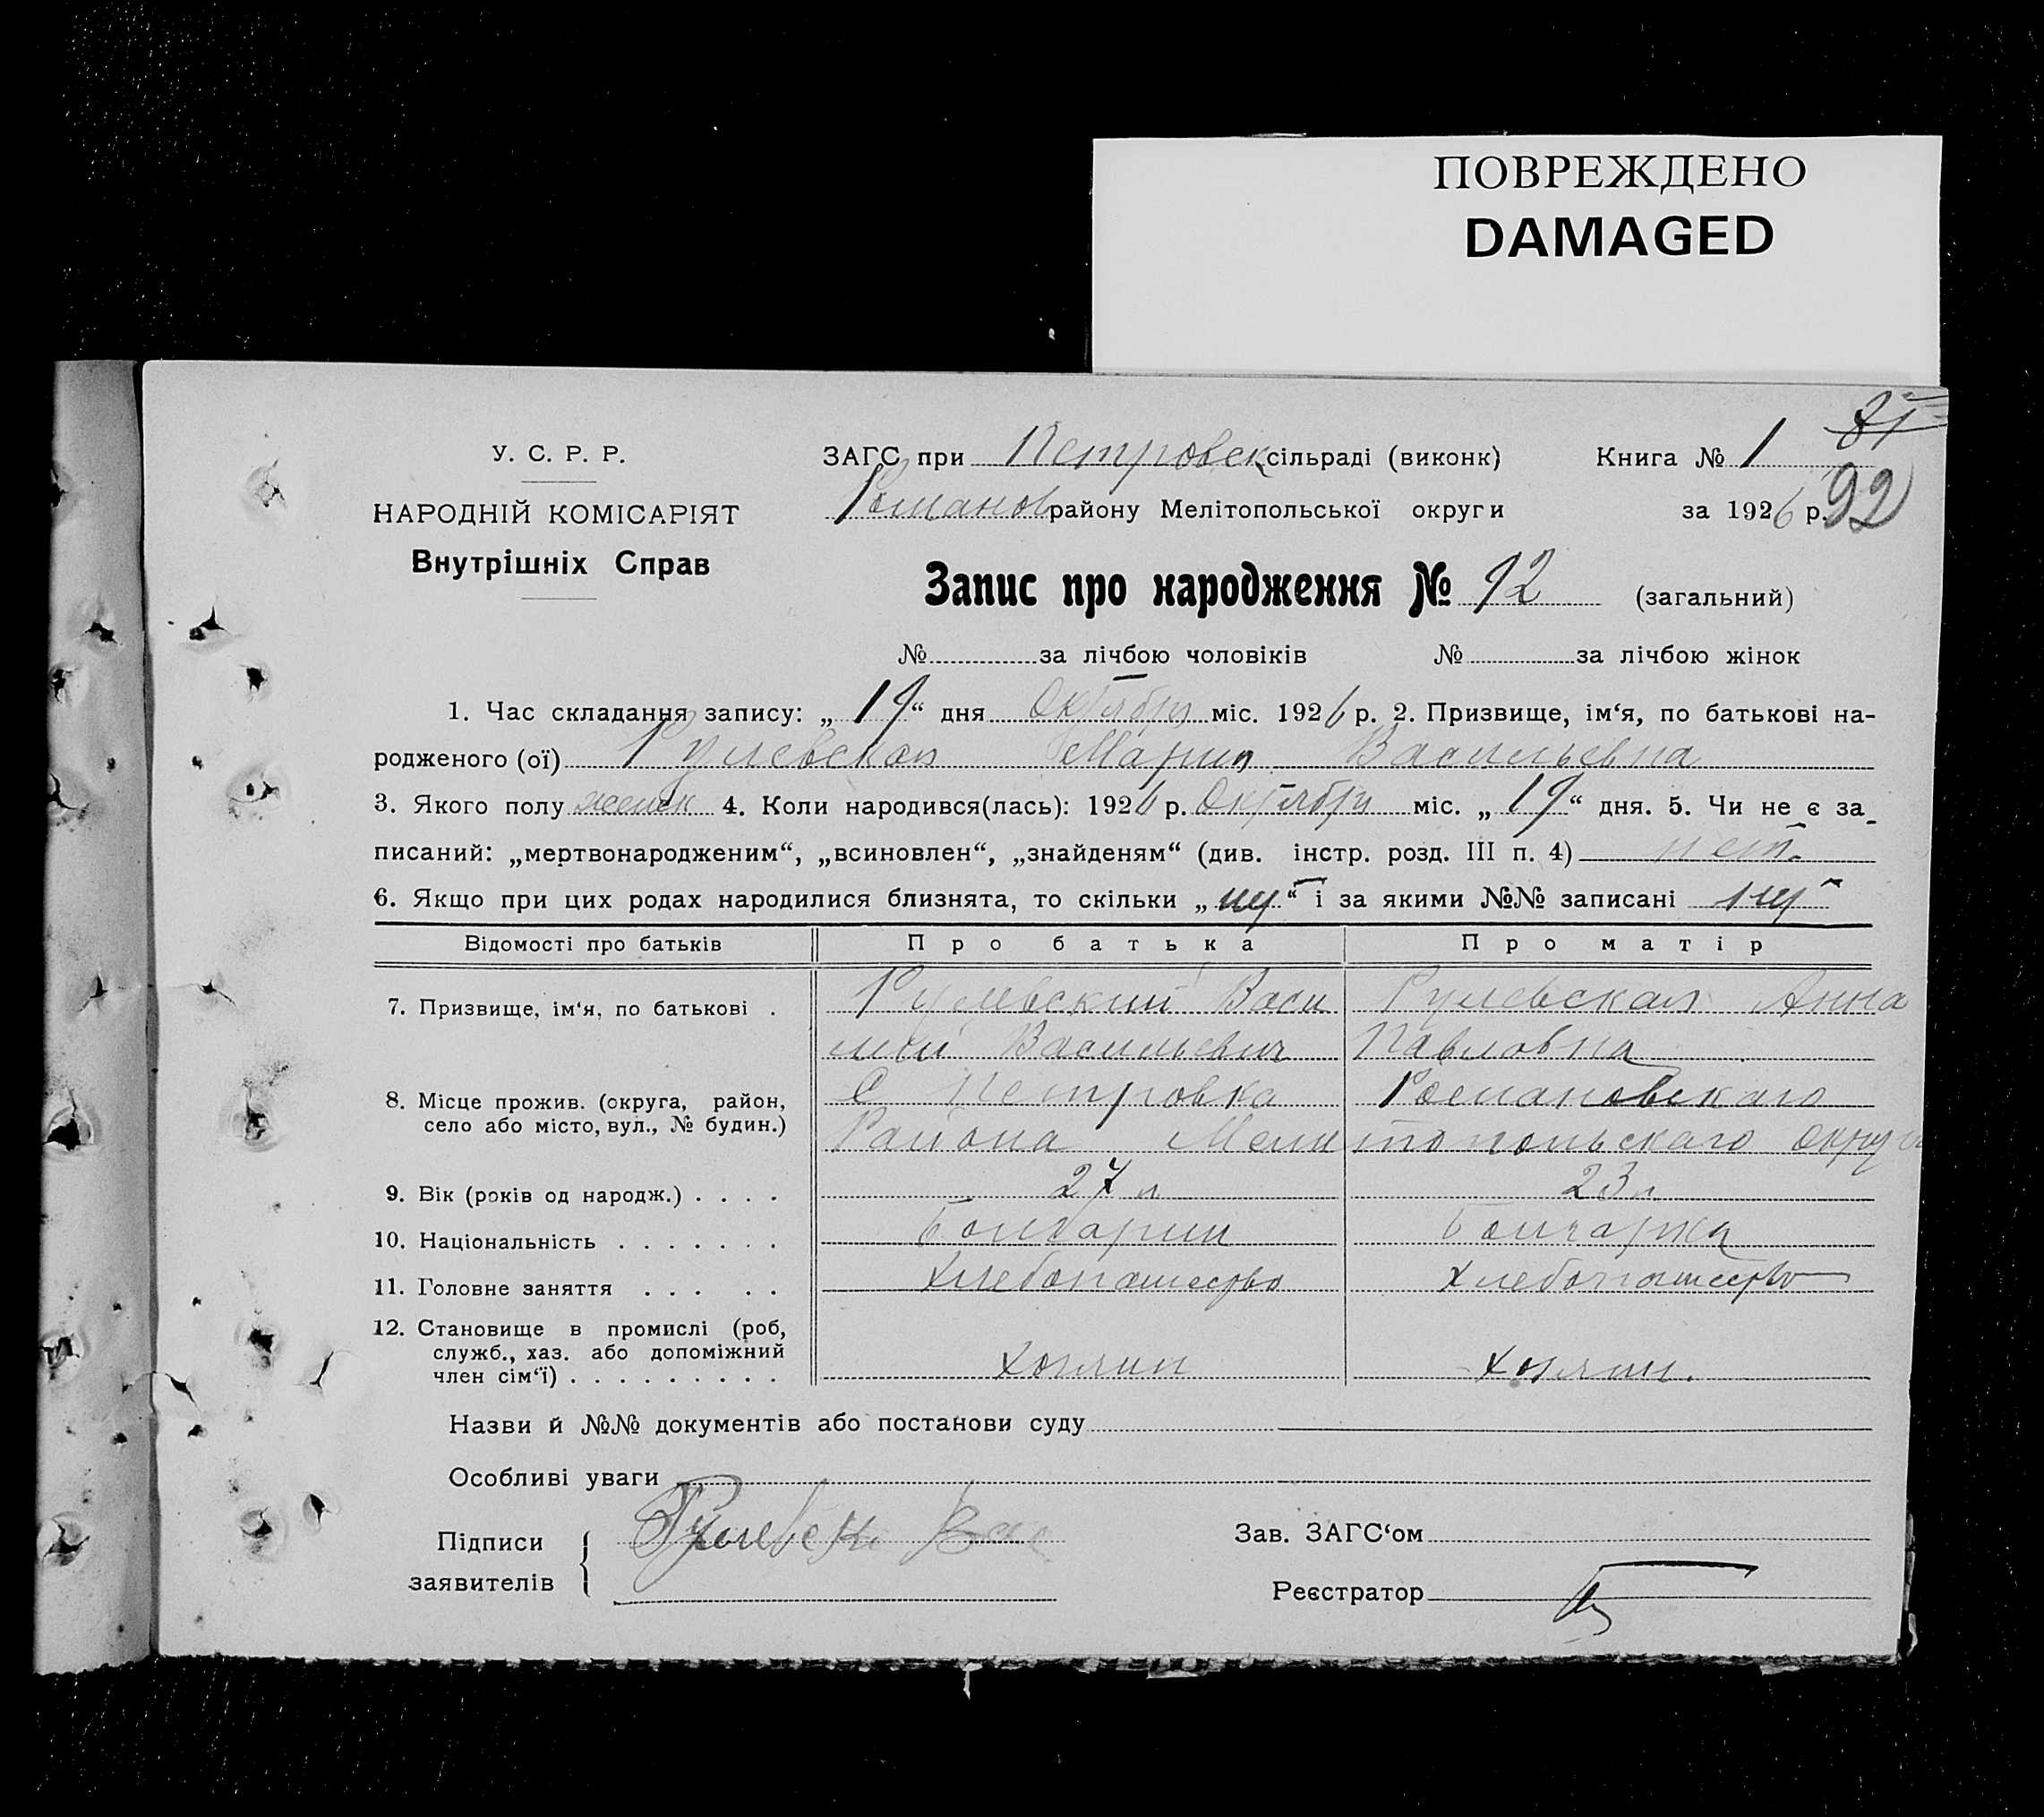 ПОВРЕЖДЕНО
DAMAGED
81
У. С. Р. Р.
ЗАГС при Петровск сільраді (виконк)
Книга № 1
92
НАРОДНІЙ КОМІСАРІЯТ
Романов району Мелітопольської округи
за 1926 р.
Внутрішніх Справ
Запис про народження № 92 (загальний)
№ за лічбою чоловіків № за лічбою жінок
1. Час складання запису: „19“ дня Октября міс. 1926 р. 2. Призвище, ім‘я, по батькові на-
родженого (ої) Рулевская Мария Васильевна
3. Якого полу женск 4. Коли народився(лась): 1926 р. Октября міс. „19“ дня. 5. Чи не є за-
писаний: „мертвонародженим“, „всиновлен“, „знайденям“ (див. інстр. розд. III п. 4) нет.
6. Якщо при цих родах народилися близнята, то скільки „ “ і за якими №№ записані
Відомості про батьків Про батька Про матір
7. Призвище, ім‘я, по батькові . Рулевский Васи Рулевская Анна
лий Васильевич Павловна
8. Місце прожив. (округа, район, С Петровка Романовскаго
село або місто, вул., № будин.) Района Мелитопольскаго округа
9. Вік (років од народж.) . . . . 27 л 23 л
10. Національність . . . . . . . Болгарин Болгарка
11. Головне заняття . . . . . Хлебопашество Хлебопашество
12. Становище в промислі (роб,
служб., хаз. або допоміжний
член сім‘ї) . . . . . . . . . хозяин хозяин.
Назви й №№ документів або постанови суду
Особливі уваги
Підписи Рулевски Вас
заявителів
Зав. ЗАГС‘ом
Реєстратор